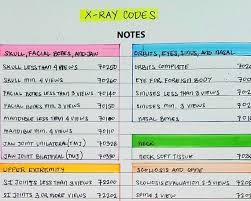 X-RAY CODES
NOTES
SKULL, FACIAL BONES, AND JAW
SKULL LESS THAN 4 VIEWS 70250
SKULL MIN. 4 VIEWS 70260
FACIAL BONES LESS THAN 3 VIEWS 70140
FACIAL BONES MIN. 3 VIEWS 70150
MANDIBLE LESS THAN 4 VIEWS 70100
MANDIBLE MIN. 4 VIEWS 70110
JAW JOINT UNILATERAL (TMJ) 70328
JAW JOINT BILATERAL (TMJ) 70330
UPPER EXTREMITY
SI JOINTS LESS THAN 3 VIEWS 72200
SI JOINTS 3 OR MORE VIEWS 72202
ORBITS, EYES, SINUS, AND NASAL
ORBITS COMPLETE
EYE FOR FOREIGN BODY
SINUSES LESS THAN 3 VIEWS
SINUSES MIN. 3 VIEWS
NECK
NECK SOFT TISSUE
SCOLIOSIS AND SPINE
SCOLIOSIS EVALUATION 1 VIEW
SCOLIOSIS 2-3 VIEWS